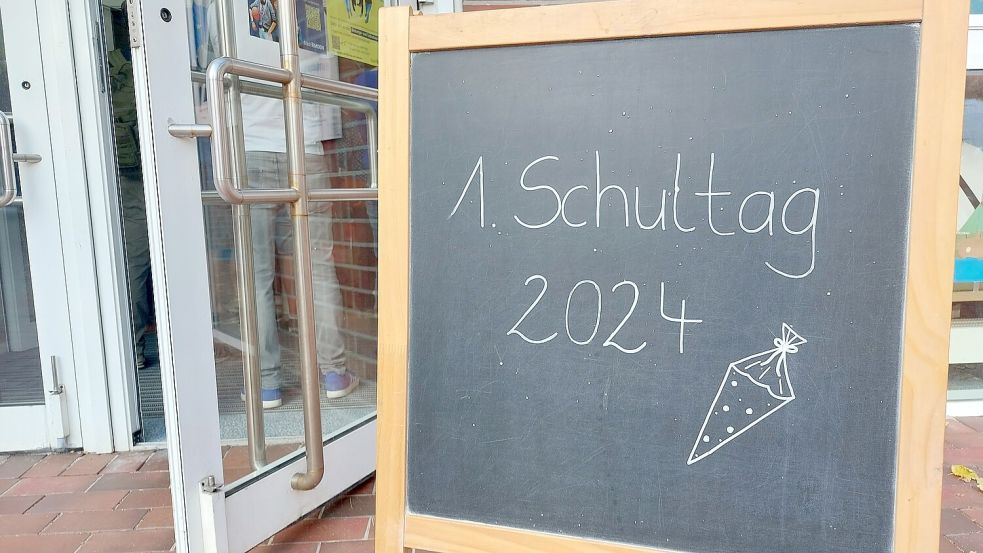 1. Schultag
2024